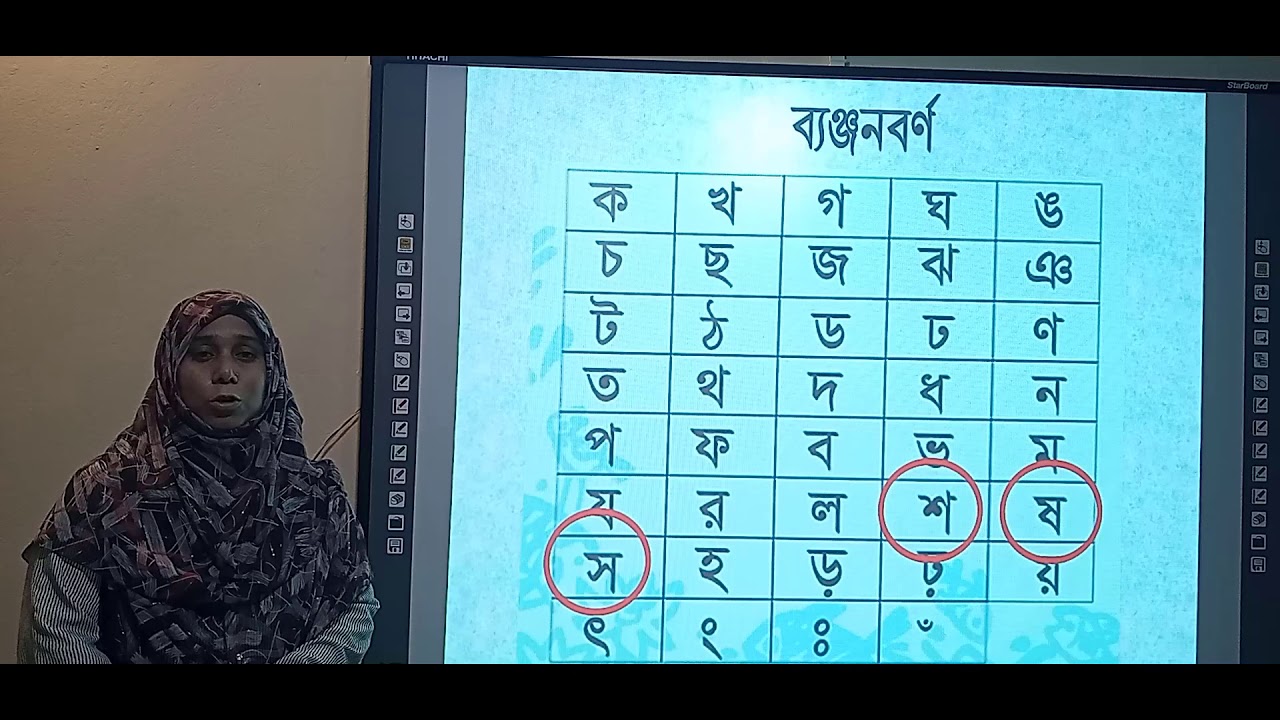 HITACHI
StarBoard
ব্যঞ্জনবর্ণ
ক খ গ ঘ ঙ
চ ছ জ ঝ ঞ
ট ঠ ড ঢ ণ
ত থ দ ধ ন
প ফ ব ভ ম
য র ল শ ষ
স হ ড় ঢ় য়
ৎ ং ঃ ঁ